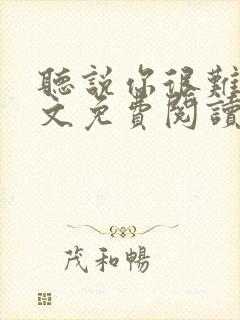 聽說你很難
文免費閱讀
茂和暢